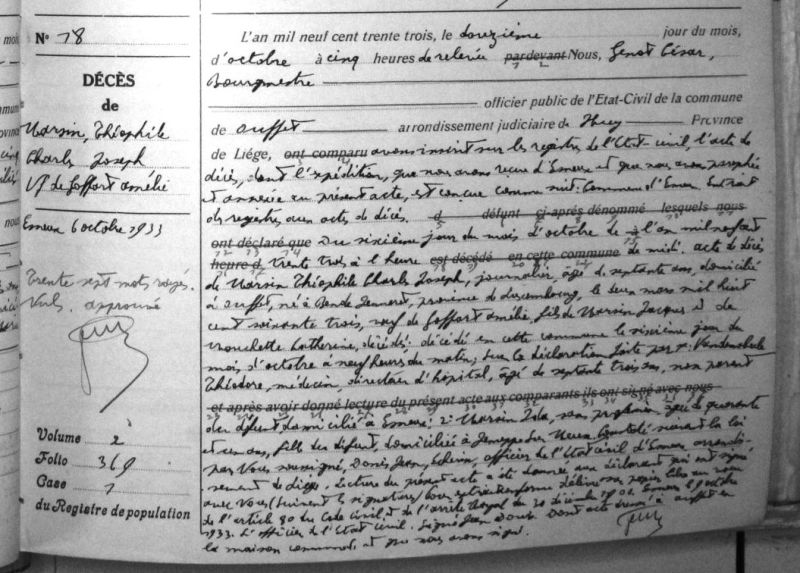 N° 78
DÉCÈS
de
Warsin, Théophile
Charles Joseph
Vf de Goffart Amélie
Esneux 6 octobre 1933
Trente sept mots rayés.
nuls. approuvé
Volume 2
Folio 369
Case 1
du Registre de population
L'an mil neuf cent trente trois, le jour du mois,
d'octobre à cinq heures de relevée par devant Nous, Genot César,
Bourgmestre
officier public de l'Etat-Civil de la commune
de Ouffet arrondissement judiciaire de Huy Province
de Liége, ont comparu avons inscrit sur les registres de l'Etat-civil, l'acte de
décès, dont l'expédition, que nous avons reçue d'Esneux et que nous avons paraphée
et annexée au présent acte, est conçue comme suit: Commune d'Esneux. Extrait
des registres aux actes de décès. d défunt ci-après dénommé lesquels nous
ont déclaré que Du sixième jour du mois d'octobre de l'an mil neuf cent
heure d trente trois à l heure est décédé en cette commune de midi. acte de décès
de Warsin Théophile Charles Joseph, journalier, âgé de septante ans, domicilié
à Ouffet, né à Bende Jenneret, province de Luxembourg, le deux mars mil huit
cent soixante trois, veuf de Goffart Amélie, fils de Warsin Jacques et de
Catherine, décédés: décédé en cette commune le sixième jour du
mois, d'octobre à neuf heures du matin; sur la déclaration faite par 1°
Théodore, médecin, directeur d'hôpital, âgé de septante trois ans, non parent
et après avoir donné lecture du présent acte aux comparants ils ont signé avec nous
du défunt domicilié à Esneux: 2° Warsin Ida, sans profession âgée de quarante
et un ans, fille du défunt, domiciliée à Jemeppe sur Meuse. Constaté suivant la loi
par Nous soussigné, Jean, échevin, officier de l'Etat civil d'Esneux arrondis-
sement de Liége. Lecture du présent acte a été donnée aux déclarants qui ont signé
avec Nous (suivent les signatures) Pour extrait conforme délivré sur papier libre au vœu
de l'article 80 du Code Civil et de l'arrêté Royal du 30 décembre Esneux, octobre
1933. L'officier de l'Etat civil. Signé Jean Dont acte dressé à Ouffet en
la maison communale et que nous avons signé.